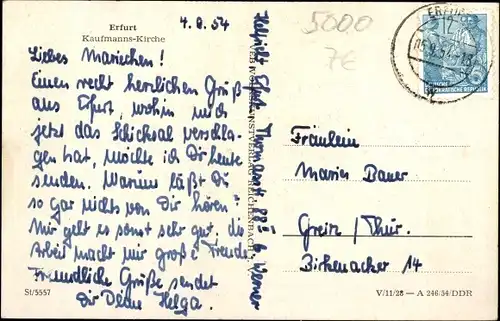 Erfurt
Kaufmanns-Kirche
4.9.54
Liebes Mariechen!
Einen recht herzlichen Gruß
aus Erfurt, wohin mich
jetzt das Schicksal verschla-
gen hat, möchte ich Dir heute
senden. Warum läßt Du
so gar nichts von Dir hören?
Mir geht es sonst sehr gut, die
Arbeit macht mir große Freude.
Freundliche Grüße sendet
Dir Deine Helga.
St/5557
Erfurt, Thomasstr. 88 II b. Werner
5000
7€
ERFURT
DEUTSCHE
DEMOKRATISCHE REPUBLIK
Fräulein
Maries Bauer
Greiz / Thür.
Birkenacker 14
V/11/28 — A 246/54/DDR